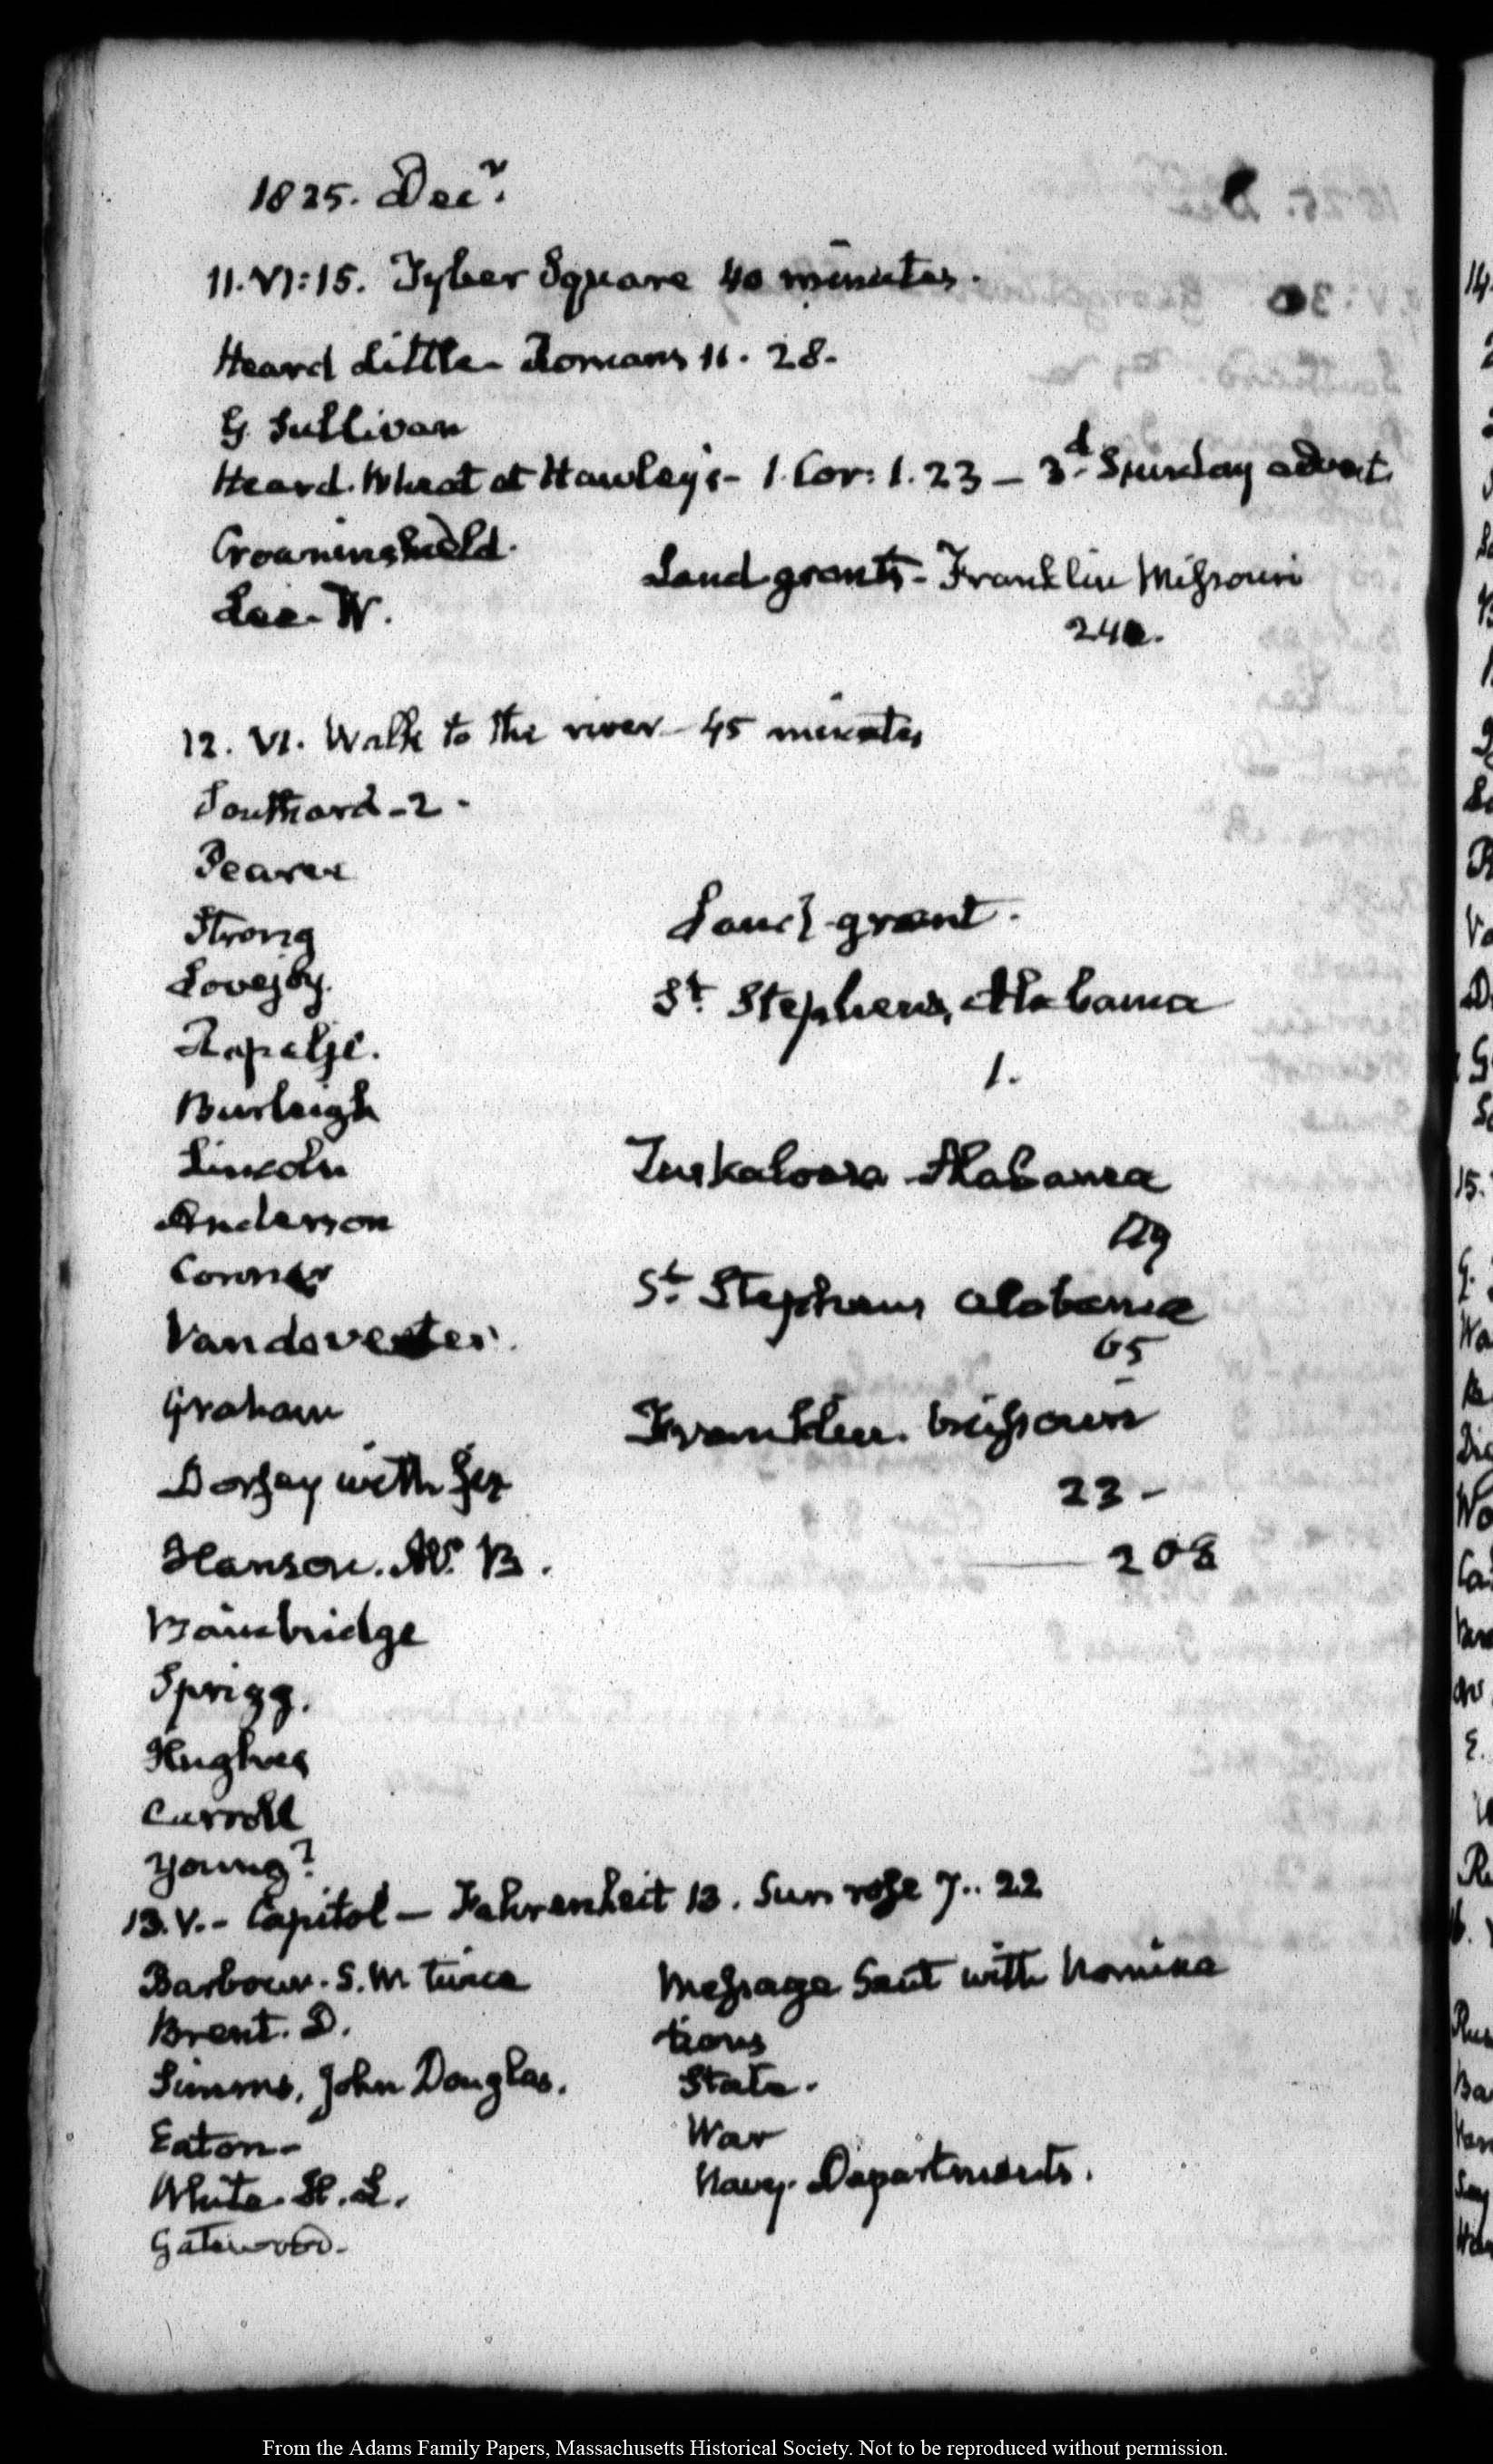 1825. Decr.
11. VI:15. Tyber Square 40 minutes.
Heard Little - Romans 11. 28.
G. Sullivan
Heard. Wheat at Hawley's - 1. Cor: 1. 23 - 3d. Sunday advent
Crowninshield.
Lee. W.
Land grants - Franklin Missouri
240.
12. VI. Walk to the river - 45 minutes
Southard - 2.
Pearce
Strong
Lovejoy.
Rapelje.
Burleigh
Lincoln
Anderson
Conner
Vandeventer.
Graham
Dorsey with
Hanson. A. B.
Bainbridge
Sprigg.
Hughes
Carroll
Young?
Land grant.
St. Stephens, Alabama
1.
Tuskaloosa Alabama
St. Stephens Alabama
65
Franklin. Missouri
23 -
208
13. V. - Capitol - Fahrenheit 13. Sun rose 7.. 22
Barbour. S. W twice
Brent. D.
Simms, John Douglas.
Eaton -
White. H. L.
Gatewood.
Message Sent with Nomina
tions
State.
War
Navy. Departments.
From the Adams Family Papers, Massachusetts Historical Society. Not to be reproduced without permission.